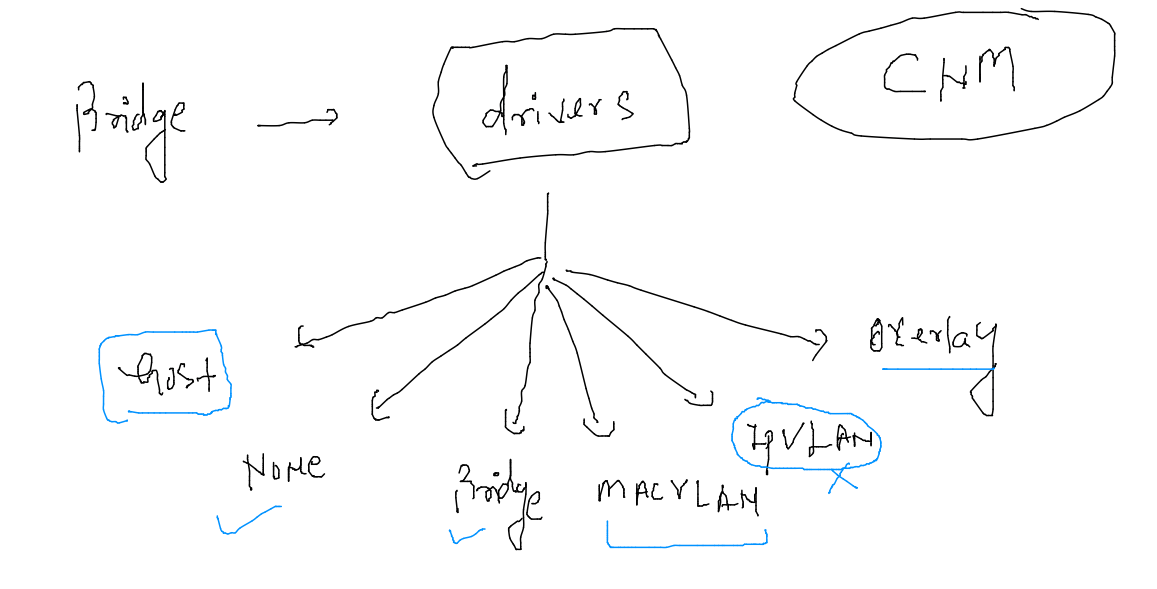 Bridge
drivers
CNM
host
None
Bridge
MACVLAN
IpVLAN
Overlay